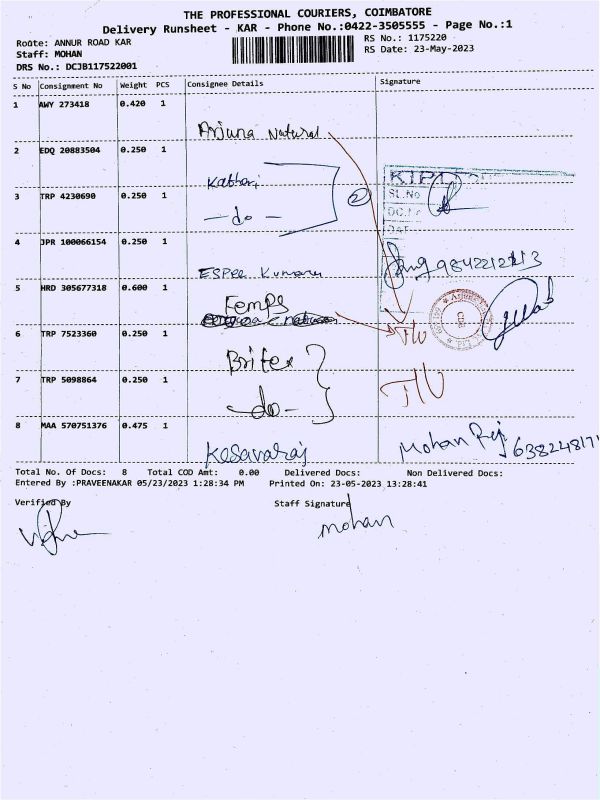 THE PROFESSIONAL COURIERS, COIMBATORE
Delivery Runsheet - KAR - Phone No.:0422-3505555 - Page No.:1
Route: ANNUR ROAD KAR
RS No.: 1175220
Staff: MOHAN
RS Date: 23-May-2023
DRS No.: DCJB117522001
S No Consignment No Weight PCS Consignee Details Signature
1 AWY 273418 0.420 1
Arjuna Natural
2 EDQ 20883504 0.250 1
Kathari
3 TRP 4230690 0.250 1
-do-
2
SL.No
4 JPR 100066154 0.250 1
ESPEE Kumaru
5 HRD 305677318 0.600 1
Femps
6 TRP 7523360 0.250 1
Britex
7 TRP 5098864 0.250 1
-do-
8 MAA 570751376 0.475 1
Kesavaraj
Mohan
Total No. Of Docs: 8 Total COD Amt: 0.00 Delivered Docs: Non Delivered Docs:
Entered By :PRAVEENAKAR 05/23/2023 1:28:34 PM Printed On: 23-05-2023 13:28:41
Verified By Staff Signature
mohan